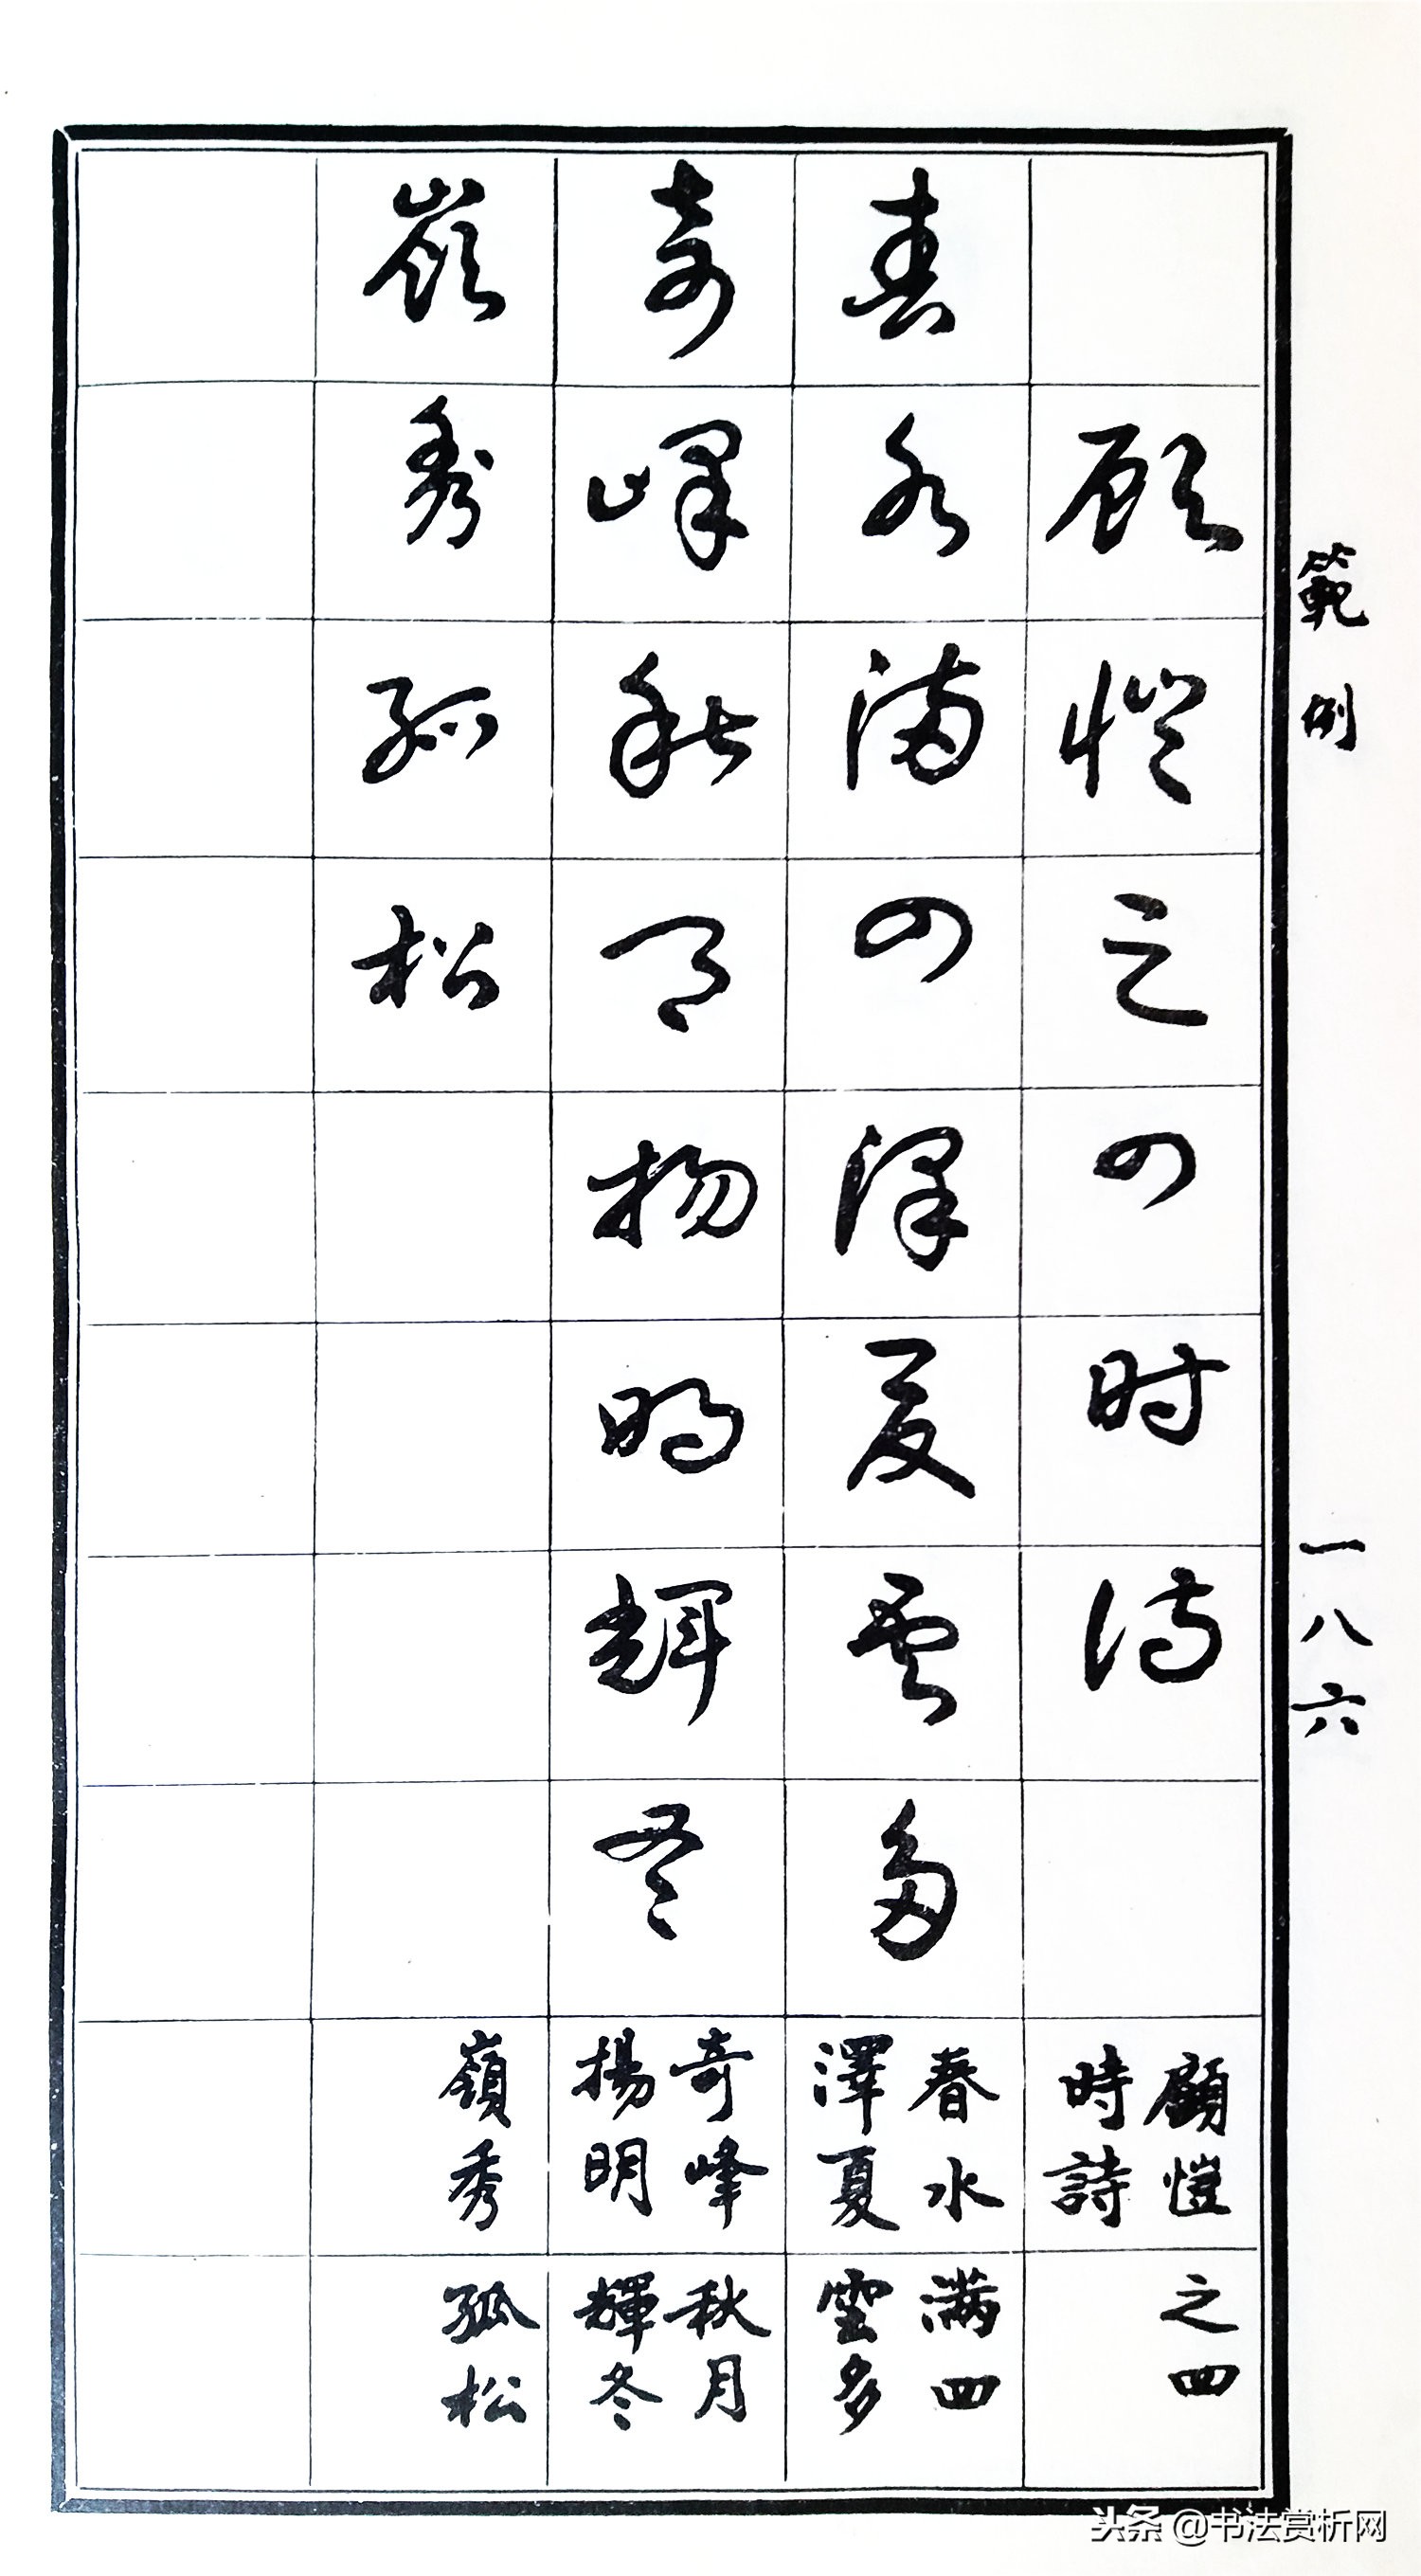 範例
一八六
顧愷之四时詩
春水滿四澤夏雲多
奇峰秋月揚明輝冬
嶺秀孤松
顧愷之四
時詩
春水滿四
澤夏雲多
奇峰秋月
揚明輝冬
嶺秀孤松
头条 @书法赏析网